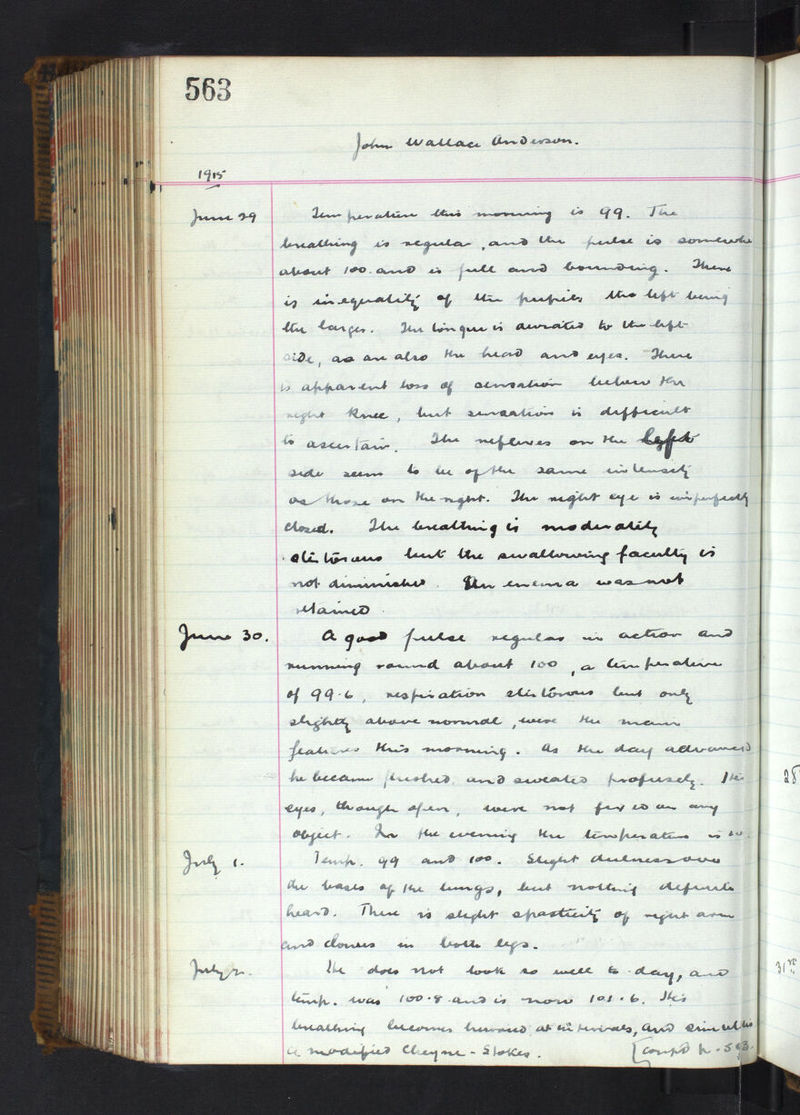 563
John Wallace Anderson.
1915
June 29 Temperature this morning is 99. The
breathing is regular, and the pulse is somewhere
about 100 and is full and bounding. There
is inequality of the pupils the left being
the larger. The tongue is deviated to the left
side, as are also the head and eyes. There
is apparent loss of sensation below the
right knee, but sensation is difficult
to ascertain. The reflexes on the left
side seem to be of the same intensity
as those on the right. The right eye is imperfectly
closed. The breathing is moderately
stertorous but the swallowing faculty is
not diminished. An enema was not
retained.
June 30. A good pulse regular in action and
running round about 100, a temperature
of 99.6, respiration stertorous but only
slightly above normal, were the main
features this morning. As the day advanced
he became flushed and sweated profusely. His
eyes, though open, were not fixed on any
object. In the evening the temperature is
July 1. Temp. 99 and 100. Slight dulness over
the bases of the lungs, but nothing definite
heard. There is slight spasticity of right arm
and clonus in both legs.
July 2. He does not look so well to-day, and
temp. was 100.8 and is now 101.6. His
breathing becomes hurried at intervals, and simulates
a modified Cheyne-Stokes. [contd p.
28
31st